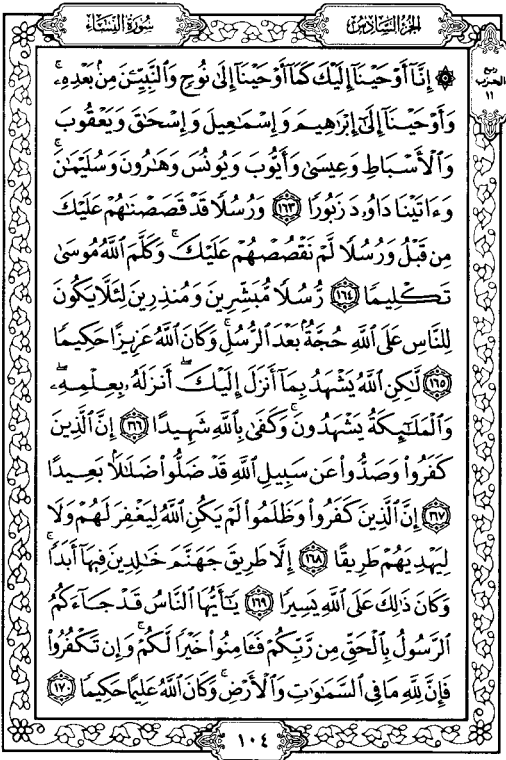 سُورَةُ النِّسَاءِ
الجُزءُ السَّادِسُ
ربع
الحزب
١١
۞ إِنَّآ أَوْحَيْنَآ إِلَيْكَ كَمَآ أَوْحَيْنَآ إِلَىٰ نُوحٍ وَٱلنَّبِيِّـۧنَ مِنۢ بَعْدِهِۦۚ
وَأَوْحَيْنَآ إِلَىٰٓ إِبْرَٰهِيمَ وَإِسْمَٰعِيلَ وَإِسْحَٰقَ وَيَعْقُوبَ
وَٱلْأَسْبَاطِ وَعِيسَىٰ وَأَيُّوبَ وَيُونُسَ وَهَٰرُونَ وَسُلَيْمَٰنَۚ
وَءَاتَيْنَا دَاوُۥدَ زَبُورًا ١٦٣ وَرُسُلًا قَدْ قَصَصْنَٰهُمْ عَلَيْكَ
مِن قَبْلُ وَرُسُلًا لَّمْ نَقْصُصْهُمْ عَلَيْكَۚ وَكَلَّمَ ٱللَّهُ مُوسَىٰ
تَكْلِيمًا ١٦٤ رُّسُلًا مُّبَشِّرِينَ وَمُنذِرِينَ لِئَلَّا يَكُونَ
لِلنَّاسِ عَلَى ٱللَّهِ حُجَّةٌۢ بَعْدَ ٱلرُّسُلِۚ وَكَانَ ٱللَّهُ عَزِيزًا حَكِيمًا
١٦٥ لَّٰكِنِ ٱللَّهُ يَشْهَدُ بِمَآ أَنزَلَ إِلَيْكَۖ أَنزَلَهُۥ بِعِلْمِهِۦۖ
وَٱلْمَلَٰٓئِكَةُ يَشْهَدُونَۚ وَكَفَىٰ بِٱللَّهِ شَهِيدًا ١٦٦ إِنَّ ٱلَّذِينَ
كَفَرُوا۟ وَصَدُّوا۟ عَن سَبِيلِ ٱللَّهِ قَدْ ضَلُّوا۟ ضَلَٰلًۢا بَعِيدًا
١٦٧ إِنَّ ٱلَّذِينَ كَفَرُوا۟ وَظَلَمُوا۟ لَمْ يَكُنِ ٱللَّهُ لِيَغْفِرَ لَهُمْ وَلَا
لِيَهْدِيَهُمْ طَرِيقًا ١٦٨ إِلَّا طَرِيقَ جَهَنَّمَ خَٰلِدِينَ فِيهَآ أَبَدًاۚ
وَكَانَ ذَٰلِكَ عَلَى ٱللَّهِ يَسِيرًا ١٦٩ يَٰٓأَيُّهَا ٱلنَّاسُ قَدْ جَآءَكُمُ
ٱلرَّسُولُ بِٱلْحَقِّ مِن رَّبِّكُمْ فَـَٔامِنُوا۟ خَيْرًا لَّكُمْۚ وَإِن تَكْفُرُوا۟
فَإِنَّ لِلَّهِ مَا فِى ٱلسَّمَٰوَٰتِ وَٱلْأَرْضِۚ وَكَانَ ٱللَّهُ عَلِيمًا حَكِيمًا ١٧٠
١٠٤